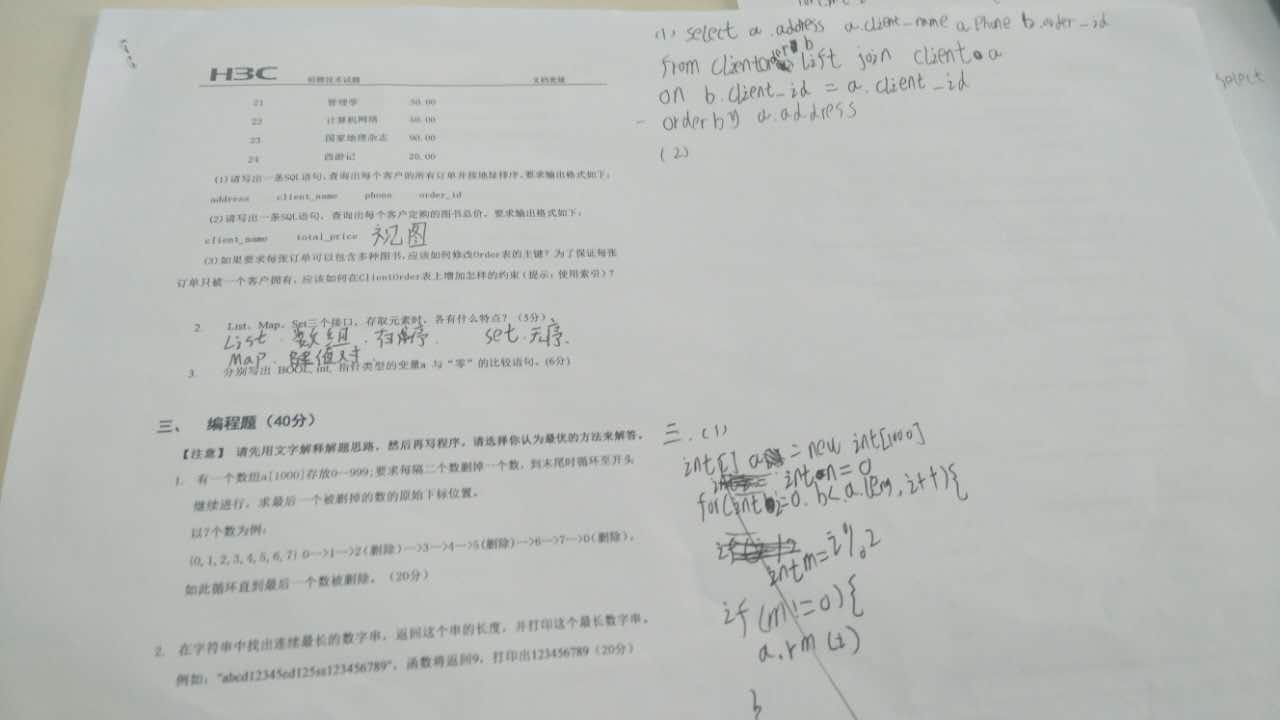 H3C 招聘技术试题 文档密级
21 管理学 50.00
22 计算机网络 40.00
23 国家地理杂志 90.00
24 西游记 20.00
(1)请写出一条SQL语句,查询出每个客户的所有订单并按地址排序,要求输出格式如下:
address client_name phone order_id
(2)请写出一条SQL语句,查询出每个客户定购的图书总价,要求输出格式如下:
client_name total_price 视图
(3)如果要求每张订单可以包含多种图书,应该如何修改Order表的主键?为了保证每张
订单只被一个客户拥有,应该如何在ClientOrder表上增加怎样的约束(提示:使用索引)?
2. List、Map、Set三个接口,存取元素时,各有什么特点?(5分)
List.数组.有序. set.无序.
Map.键值对.
3. 分别写出 BOOL, int, 指针类型的变量a 与“零”的比较语句。(6分)
三、 编程题(40分)
【注意】 请先用文字解释解题思路,然后再写程序,请选择你认为最优的方法来解答。
1. 有一个数组a[1000]存放0--999;要求每隔二个数删掉一个数,到末尾时循环至开头
继续进行,求最后一个被删掉的数的原始下标位置。
以7个数为例:
{0,1,2,3,4,5,6,7} 0-->1-->2(删除)-->3-->4-->5(删除)-->6-->7-->0(删除),
如此循环直到最后一个数被删除。(20分)
2. 在字符串中找出连续最长的数字串,返回这个串的长度,并打印这个最长数字串。
例如:"abcd12345cd125ss123456789",函数将返回9,打印出123456789(20分)
(1) select a.address a.client_name a phone b.order_id
from clientorder b list join client a
on b.client_id = a.client_id
order by a.address
(2)
select
三.(1)
int[] a = new int[1000]
int n = 0
for(int i=0. b<a.len, i++){
int m = i%2
if (m!=0){
a.rm(i)